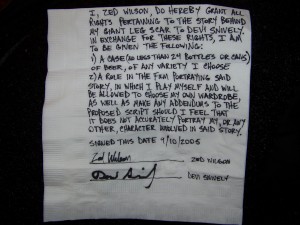 I, ZED WILSON, DO HEREBY GRANT ALL
RIGHTS PERTAINING TO THE STORY BEHIND
MY GIANT LEG SCAR TO DEVI SNIVELY.
IN EXCHANGE FOR THESE RIGHTS, I AM
TO BE GIVEN THE FOLLOWING:
1) A CASE (NO LESS THAN 24 BOTTLES OR CANS)
OF BEER, OF ANY VARIETY I CHOOSE
2) A ROLE IN THE FILM PORTRAYING SAID
STORY, IN WHICH I PLAY MYSELF AND WILL
BE ALLOWED TO CHOOSE MY OWN WARDROBE,
AS WELL AS MAKE ANY ADDENDUMS TO THE
PROPOSED SCRIPT SHOULD I FEEL THAT
IT DOES NOT ACCURATELY PORTRAY MY, OR ANY
OTHER, CHARACTER INVOLVED IN SAID STORY.
SIGNED THIS DATE 9/10/2005
Zed Wilson ZED WILSON
Devi Snively DEVI SNIVELY